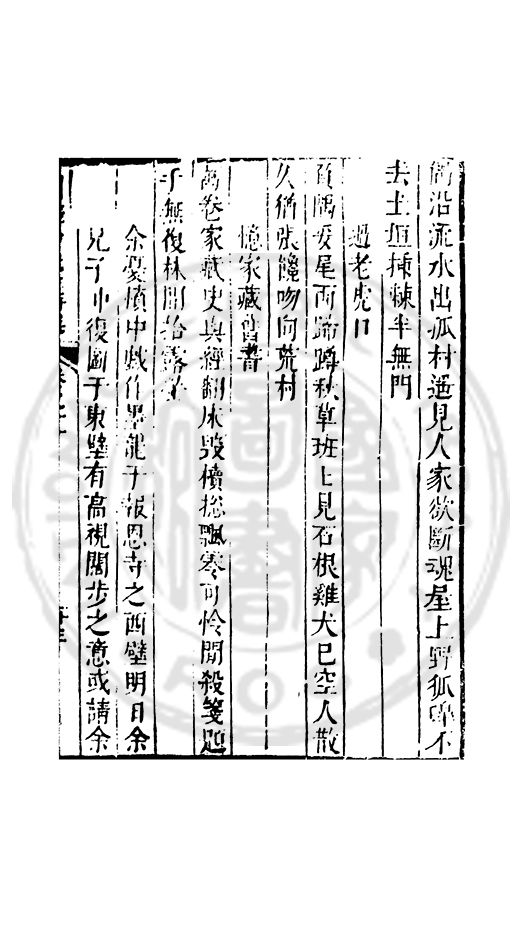 沿流水出孤村遥見人家欲斷魂屋上野狐啼不
去土垣插棘半無門
過老虎口
負隅妥尾而蹄蹲秋草班上見石根雞犬已空人散
久猶張饞吻向荒村
憶家藏舊書
萬卷家藏史與經翻床毀櫝總飄零可憐閒殺箋題
手無復林間拾落
余憂憤中戲作墨龍于報恩寺之西壁明日余
兒子中復圖于東壁有高視闊步之意或請余